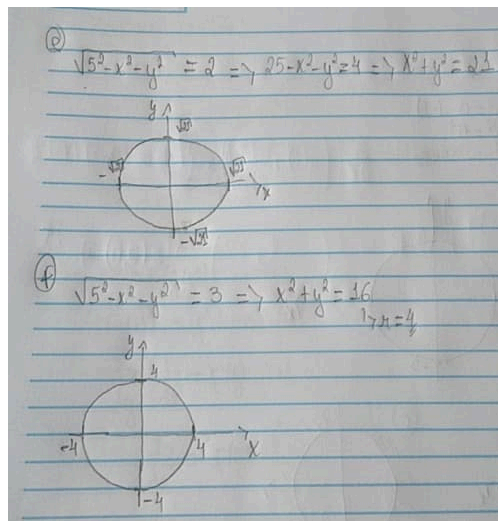 e
√5²-x²-y² = 2 => 25-x²-y²=4 => x²+y²=21
y
√21
-√21 √21
x
-√21
f
√5²-x²-y² = 3 => x²+y²=16
↳ r=4
y
4
-4 4
x
-4